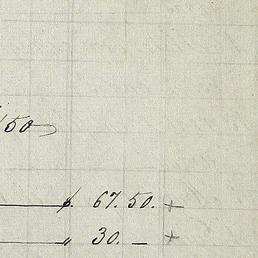 150
f. 67.50. +
" 30. — +